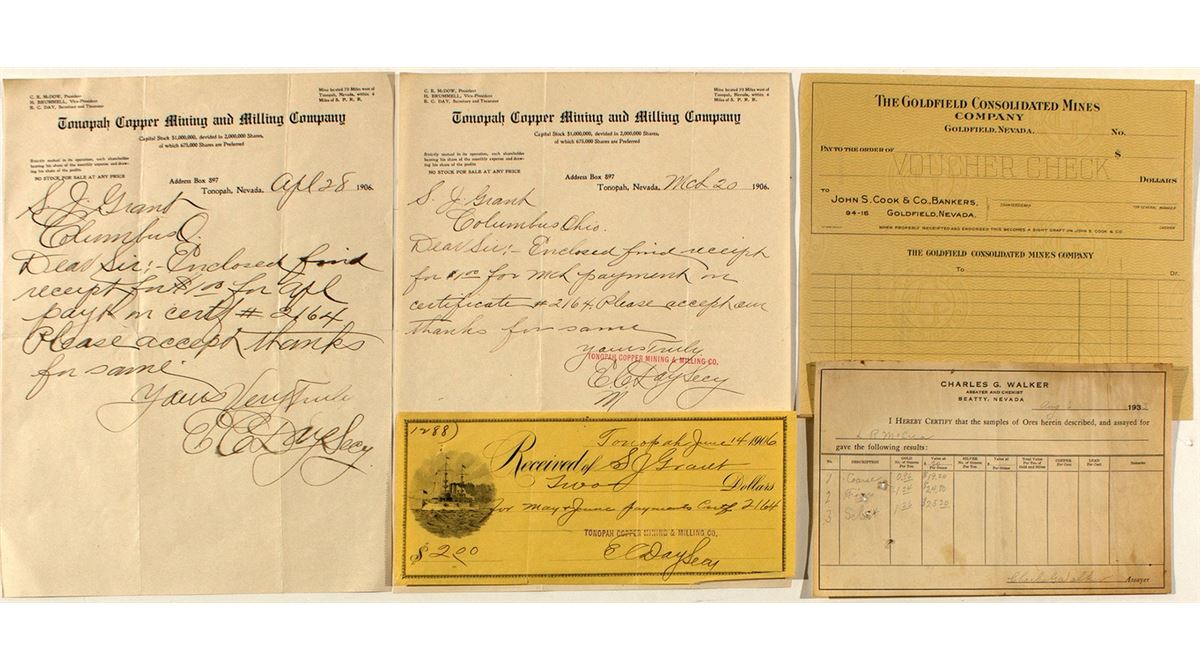 C. E. McDOW, President
H. BRUMMELL, Vice-President
E. C. DAY, Secretary and Treasurer
Mine located 70 Miles west of
Tonopah, Nevada, within 6
Miles of S. P. R. R.
Tonopah Copper Mining and Milling Company
Capital Stock $1,000,000, devided in 2,000,000 Shares,
of which 675,000 Shares are Preferred
Strictly mutual in its operation, each shareholder
bearing his share of the monthly expense and draw-
ing his share of the profits
NO STOCK FOR SALE AT ANY PRICE
Address Box 897
Tonopah, Nevada, Apl 28 1906.
S. J. Grant
Columbus O.
Dear Sir;- Enclosed find
receipt for $1.00 for Apl
payt on certf # 2164
Please accept thanks
for same
Yours Very Truly
E C Day Secy.
C. E. McDOW, President
H. BRUMMELL, Vice-President
E. C. DAY, Secretary and Treasurer
Mine located 70 Miles west of
Tonopah, Nevada, within 6
Miles of S. P. R. R.
Tonopah Copper Mining and Milling Company
Capital Stock $1,000,000, devided in 2,000,000 Shares,
of which 675,000 Shares are Preferred
Strictly mutual in its operation, each shareholder
bearing his share of the monthly expense and draw-
ing his share of the profits
NO STOCK FOR SALE AT ANY PRICE
Address Box 897
Tonopah, Nevada, Mch 20 1906.
S. J. Grant
Columbus Ohio.
Dear Sir;- Enclosed find receipt
for $1.00 for Mch payment on
certificate # 2164. Please accept our
thanks for same
Yours Truly
TONOPAH COPPER MINING & MILLING CO.
E. C. Day Secy
M
1288)
Tonopah June 14 1906
Received of S J Grant
Two Dollars
for May & June payments Certf 2164
TONOPAH COPPER MINING & MILLING CO.
$2.00 E C Day Secy
THE GOLDFIELD CONSOLIDATED MINES
COMPANY
GOLDFIELD, NEVADA. No.
PAY TO THE ORDER OF $
VOUCHER CHECK
DOLLARS
TO
JOHN S. COOK & CO., BANKERS,
94-16 GOLDFIELD, NEVADA.
COUNTERSIGNED
CASHIER
WHEN PROPERLY RECEIPTED AND ENDORSED THIS BECOMES A SIGHT DRAFT ON JOHN S. COOK & CO.
THE GOLDFIELD CONSOLIDATED MINES COMPANY
To Dr.
CHARLES G. WALKER
ASSAYER AND CHEMIST
BEATTY, NEVADA
Aug 193
I HEREBY CERTIFY that the samples of Ores herein described, and assayed for
gave the following results:
No. DESCRIPTION GOLD No. of Ounces Per Ton Value at $20 Per Ounce SILVER No. of Ounces Per Ton Value at $ Per Ounce Total Value Per Ton of Gold and Silver COPPER Per Cent LEAD Per Cent Remarks
1 Coarse 0.96 $19.20
2 Fine 1.24 $24.80
3 Select 1.26 $25.20
Chas G Walker Assayer